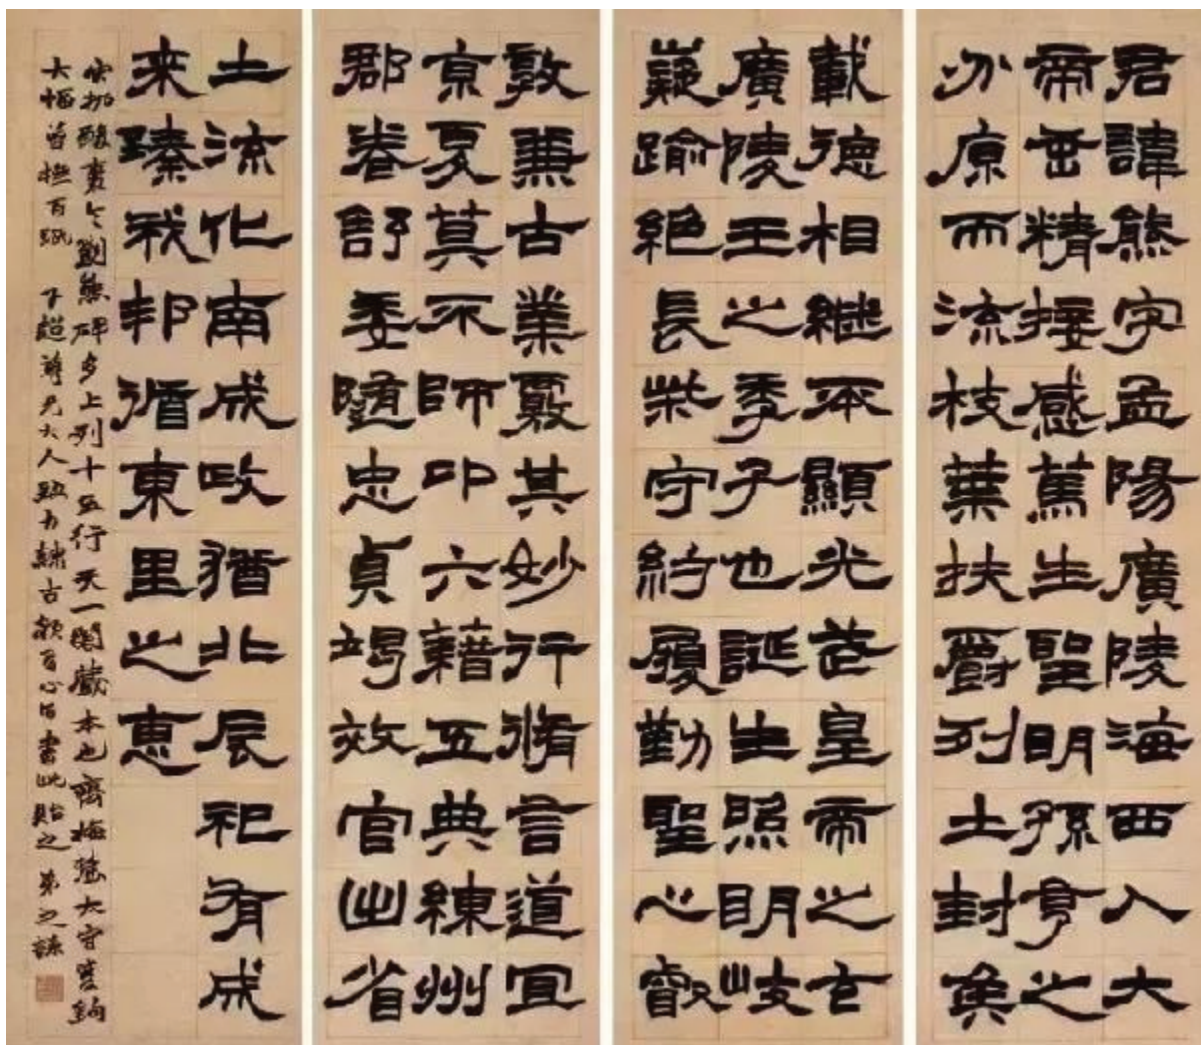 君諱熊字孟陽廣陵海西人大
帝垂精接感篤生聖明孫亨之
分原而流枝葉扶爵列土封侯
載德相繼丕顯光武皇帝之玄
廣陵王之季子也誕生照明岐
嶷踰絕長柴守約履勤聖心叡
敦兼古業覈其妙行脩言道宜
京夏莫不師卬六藉五典練州
郡卷舒委隨忠貞竭效官出省
土流化南成政猶北辰祀有成
来臻我邦循東里之惠
宋拓酸棗令劉熊碑多上列十五行天一閣藏本也齊梅麓太守鉤
大幅嘗橅百紙 子超尊兄大人力隸古書此貽之 弟之謙